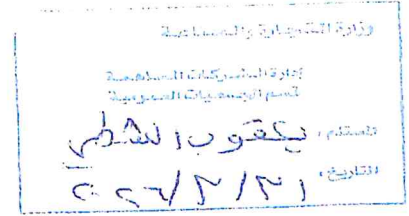 وزارة التجارة والصناعة
إدارة الشركات المساهمة
قسم الجمعيات العمومية
المستلم : يعقوب الشطي
التاريخ : ٢٠٢٦/٣/٣١